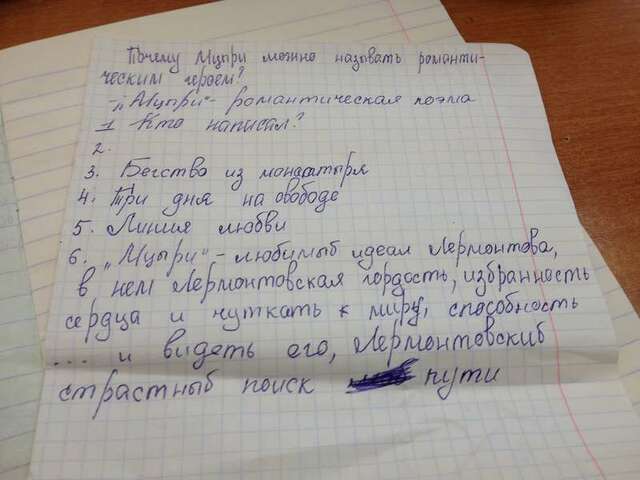 Почему Мцыри можно назвать романти-
ческим героем?
-„Мцыри"- романтическая поэма
1 Кто написал?
2.
3. Бегство из монастыря
4. Три дня на свободе
5. Линия любви
6. „Мцыри" - любимый идеал Лермонтова,
в нем Лермонтовская гордость, избранность
сердца и чуткать к миру, способность
... и видеть его, Лермонтовский
страстный поиск пути